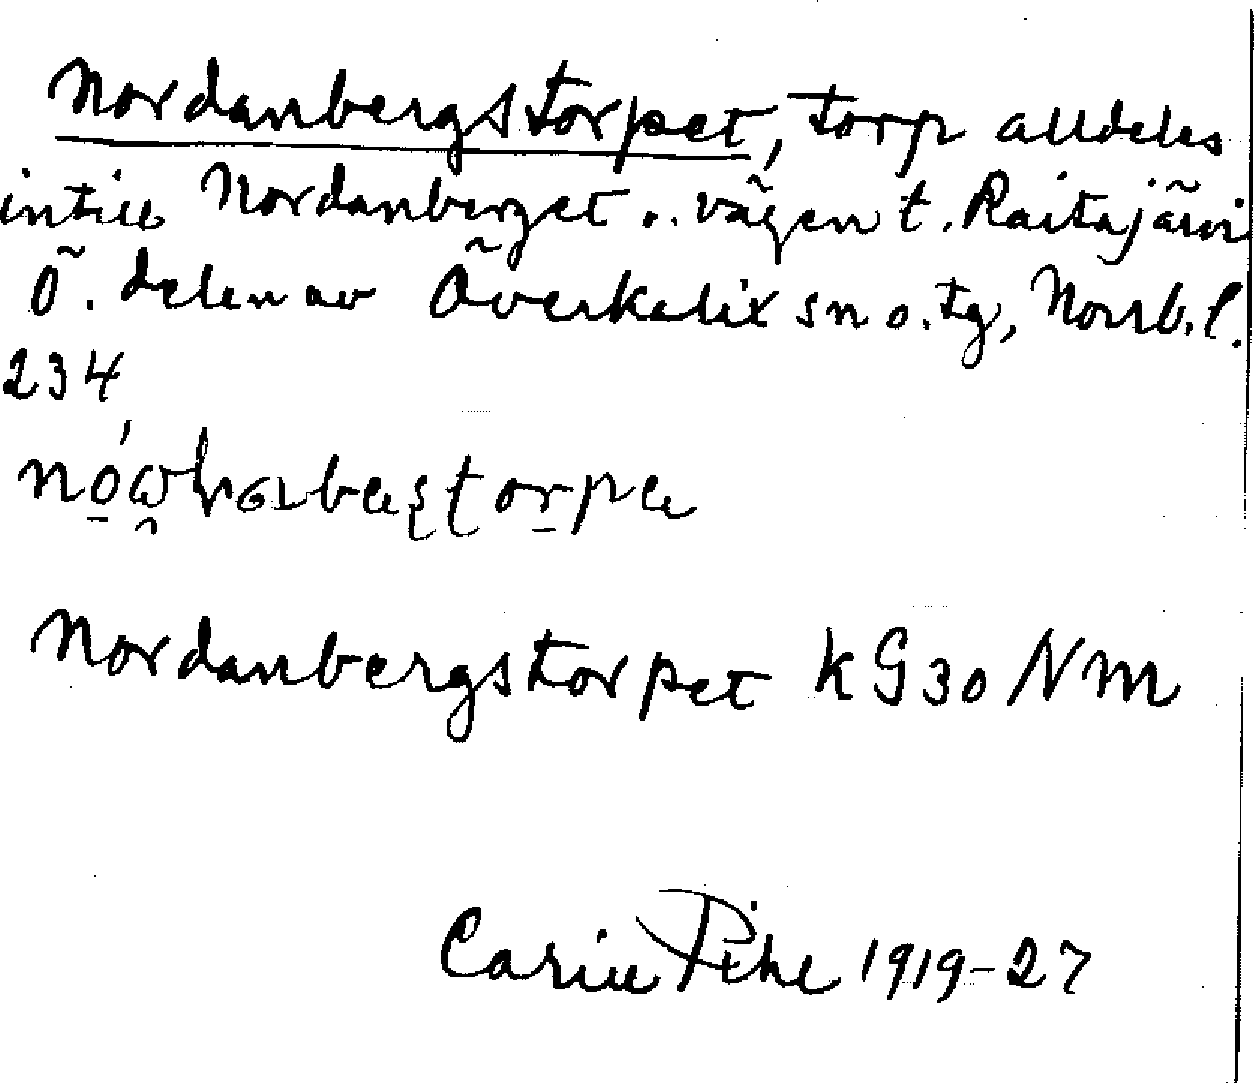 Nordanbergstorpet, torp alldeles
intill Nordanberget o. vägen t. Raitajärvi
Ö. delen av Överkalix sn o. tg, Norrb. l.
234
Nordanbergstorpet kG30NM
Carin Pihl 1919-27